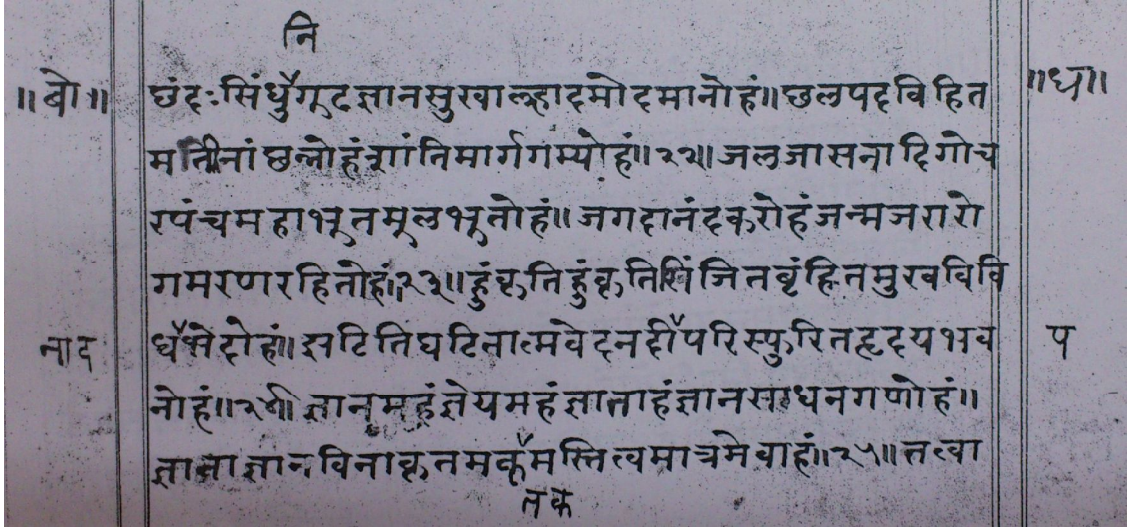 नि
॥बो॥ छंदःसिंधुैगूढज्ञानसुखाल्हादमोदमानोहं॥छलपदविहित ॥धा॥
मतीनां छलोहंशांतिमार्गगम्योहं॥२२॥जलजासनादिगोच
रपंचमहाभूतमूलभूतोहं॥जगदानंदकरोहंजन्मजरारो
गमरणरहितोहं॥२३॥हुंकृतिहुंकृतिसिंजितबृंहितमुखविवि
नाद धभेदोहं॥झटितिघटितात्मवेदनदीपरिस्फुरितहृदयभव प
नोहं॥२४॥ज्ञानमहंज्ञेयमहंज्ञाताहंज्ञानसाधनगणोहं॥
ज्ञाताज्ञानविनाकृतमर्कमस्तित्वमात्रमेवाहं॥२५॥तत्वा
तक